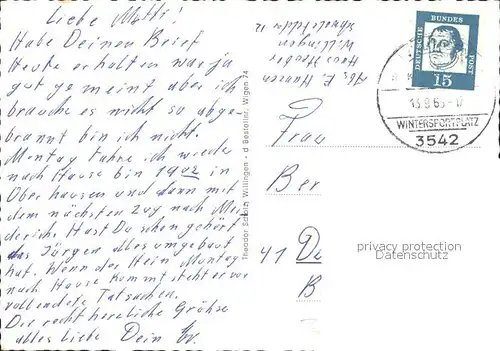 Liebe Motti!
Habe Deinen Brief
Heute erhalten war ja
gut gemeint aber ich
brauche es nicht so abge
brannt bin ich nicht.
Montag fahre ich wieder
nach Hause bin 19 Uhr in
Oberhausen und dann mit
dem nächsten Zug nach Mei
derich. Hast Du schon gehört
das Jürgen alles umgebaut
hat. Wenn der Hein Montag
nach Hause kommt steht er vor
vollendete Tatsachen.
Die recht herzliche Grüße
alles Liebe Dein
Theodor Scholz, Willingen - d Bestellnr. Wigen 24
Abs. E. Hansen
Haus
Willingen
Schwalefelder
DEUTSCHE BUNDESPOST
15
13.9.63
WINTERSPORTPLATZ
3542
Frau
Ber
41 Du
B
privacy protection
Datenschutz